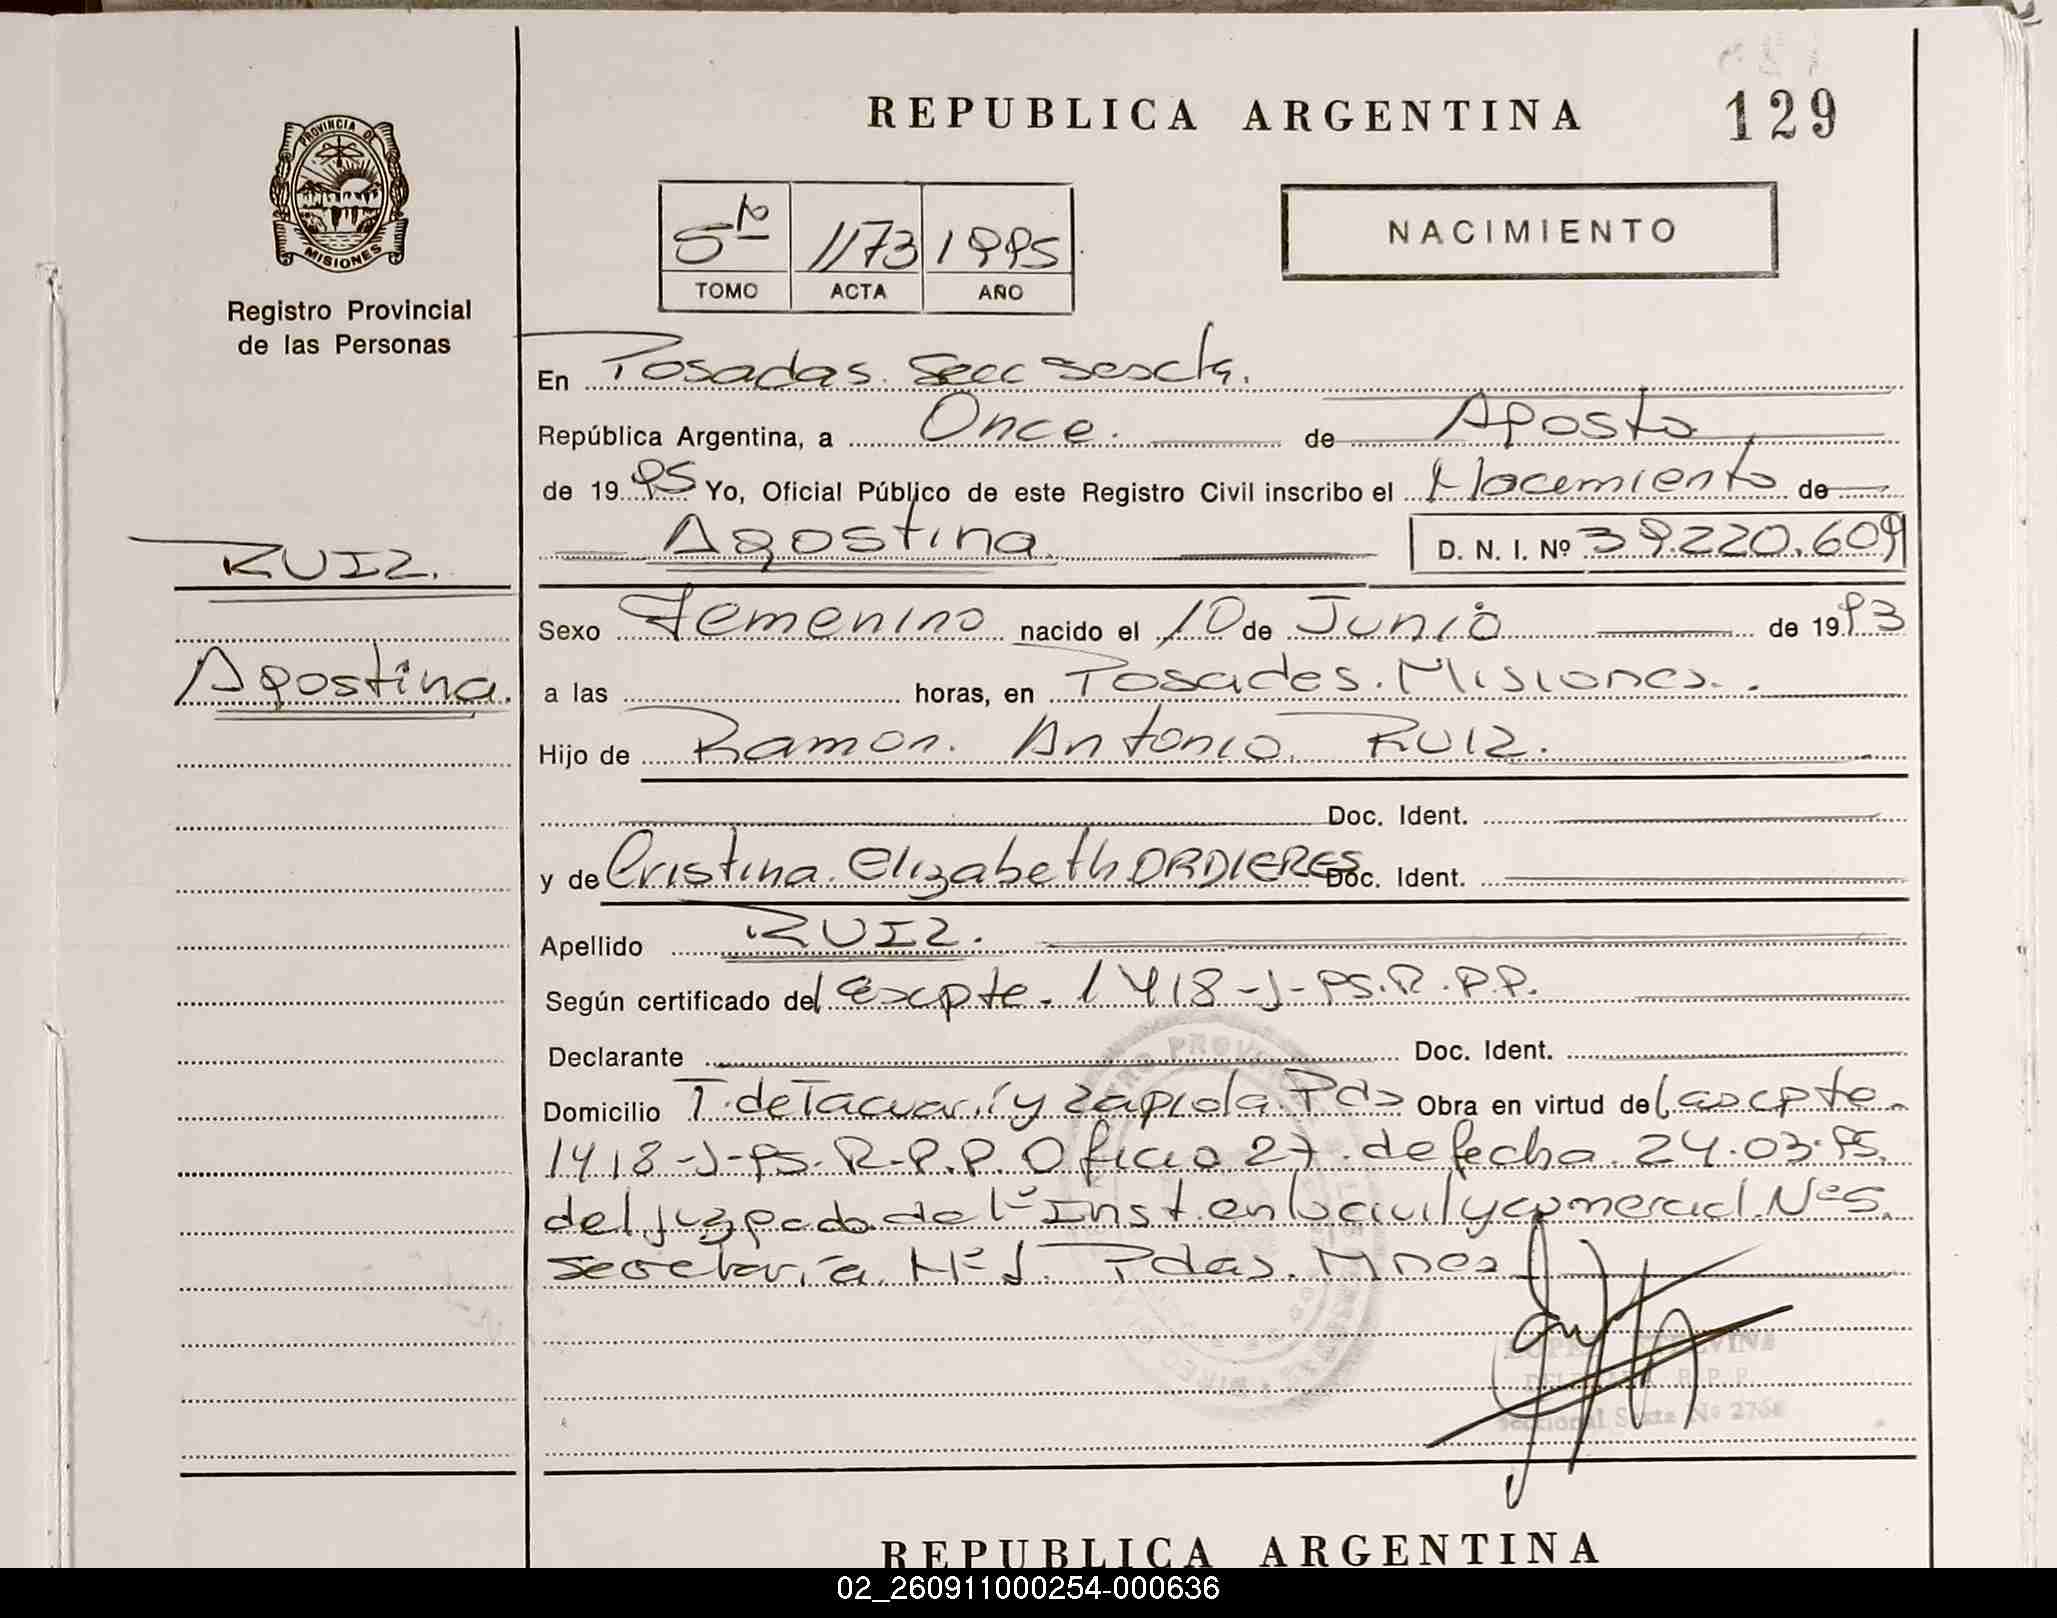 REPUBLICA ARGENTINA
129
PROVINCIA DE
MISIONES
Registro Provincial
de las Personas
5to 1173 1995
TOMO ACTA AÑO
NACIMIENTO
En Posadas. Secc Sexta.
República Argentina, a Once. de Agosto
de 1995 Yo, Oficial Público de este Registro Civil inscribo el Nacimiento de
Agostina D. N. I. Nº 39.220.609
RUIZ.
Agostina.
Sexo Femenino nacido el 10 de Junio de 1993
a las horas, en Posadas. Misiones.
Hijo de Ramon. Antonio. RUIZ.
Doc. Ident.
y de Cristina. Elizabeth ORDIERES Doc. Ident.
Apellido RUIZ.
Según certificado del Excpte. 1418-J-95.R.P.P.
Declarante Doc. Ident.
Domicilio T. de Tacuarí y Zapiola. Pdas Obra en virtud del excpte.
1418-J-95. R.P.P. Oficio 27. de fecha. 24.03.95.
del juzgado de 1ª Inst. en lo civil y comercial. Nº 5.
secretaría. Nº 1. Pdas. Mnes
Seccional Sexta Nº
REPUBLICA ARGENTINA
02_260911000254-000636